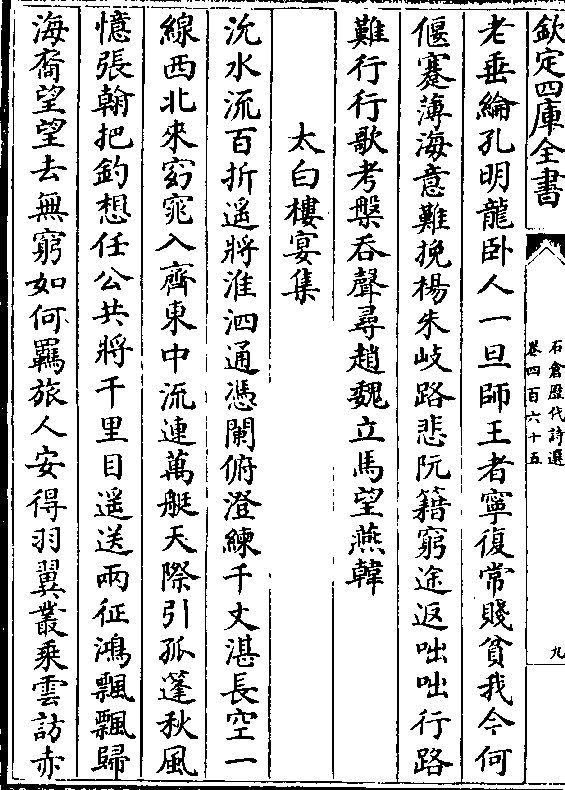 欽定四庫全書
石倉歷代詩選
卷四百六十五
九
老垂綸孔明龍卧人一旦師王者寧復常賤貧我今何
偃蹇薄海意難挽楊朱岐路悲阮籍窮途返咄咄行路
難行行歌考槃吞聲尋趙魏立馬望燕韓
太白樓宴集
沇水流百折遥將淮泗通憑闌俯澄練千丈湛長空一
線西北來窈窕入齊東中流連萬艇天際引孤蓬秋風
憶張翰把釣想任公共將千里目遥送兩征鴻飄飄歸
海裔望望去無窮如何羈旅人安得羽翼叢乘雲訪赤